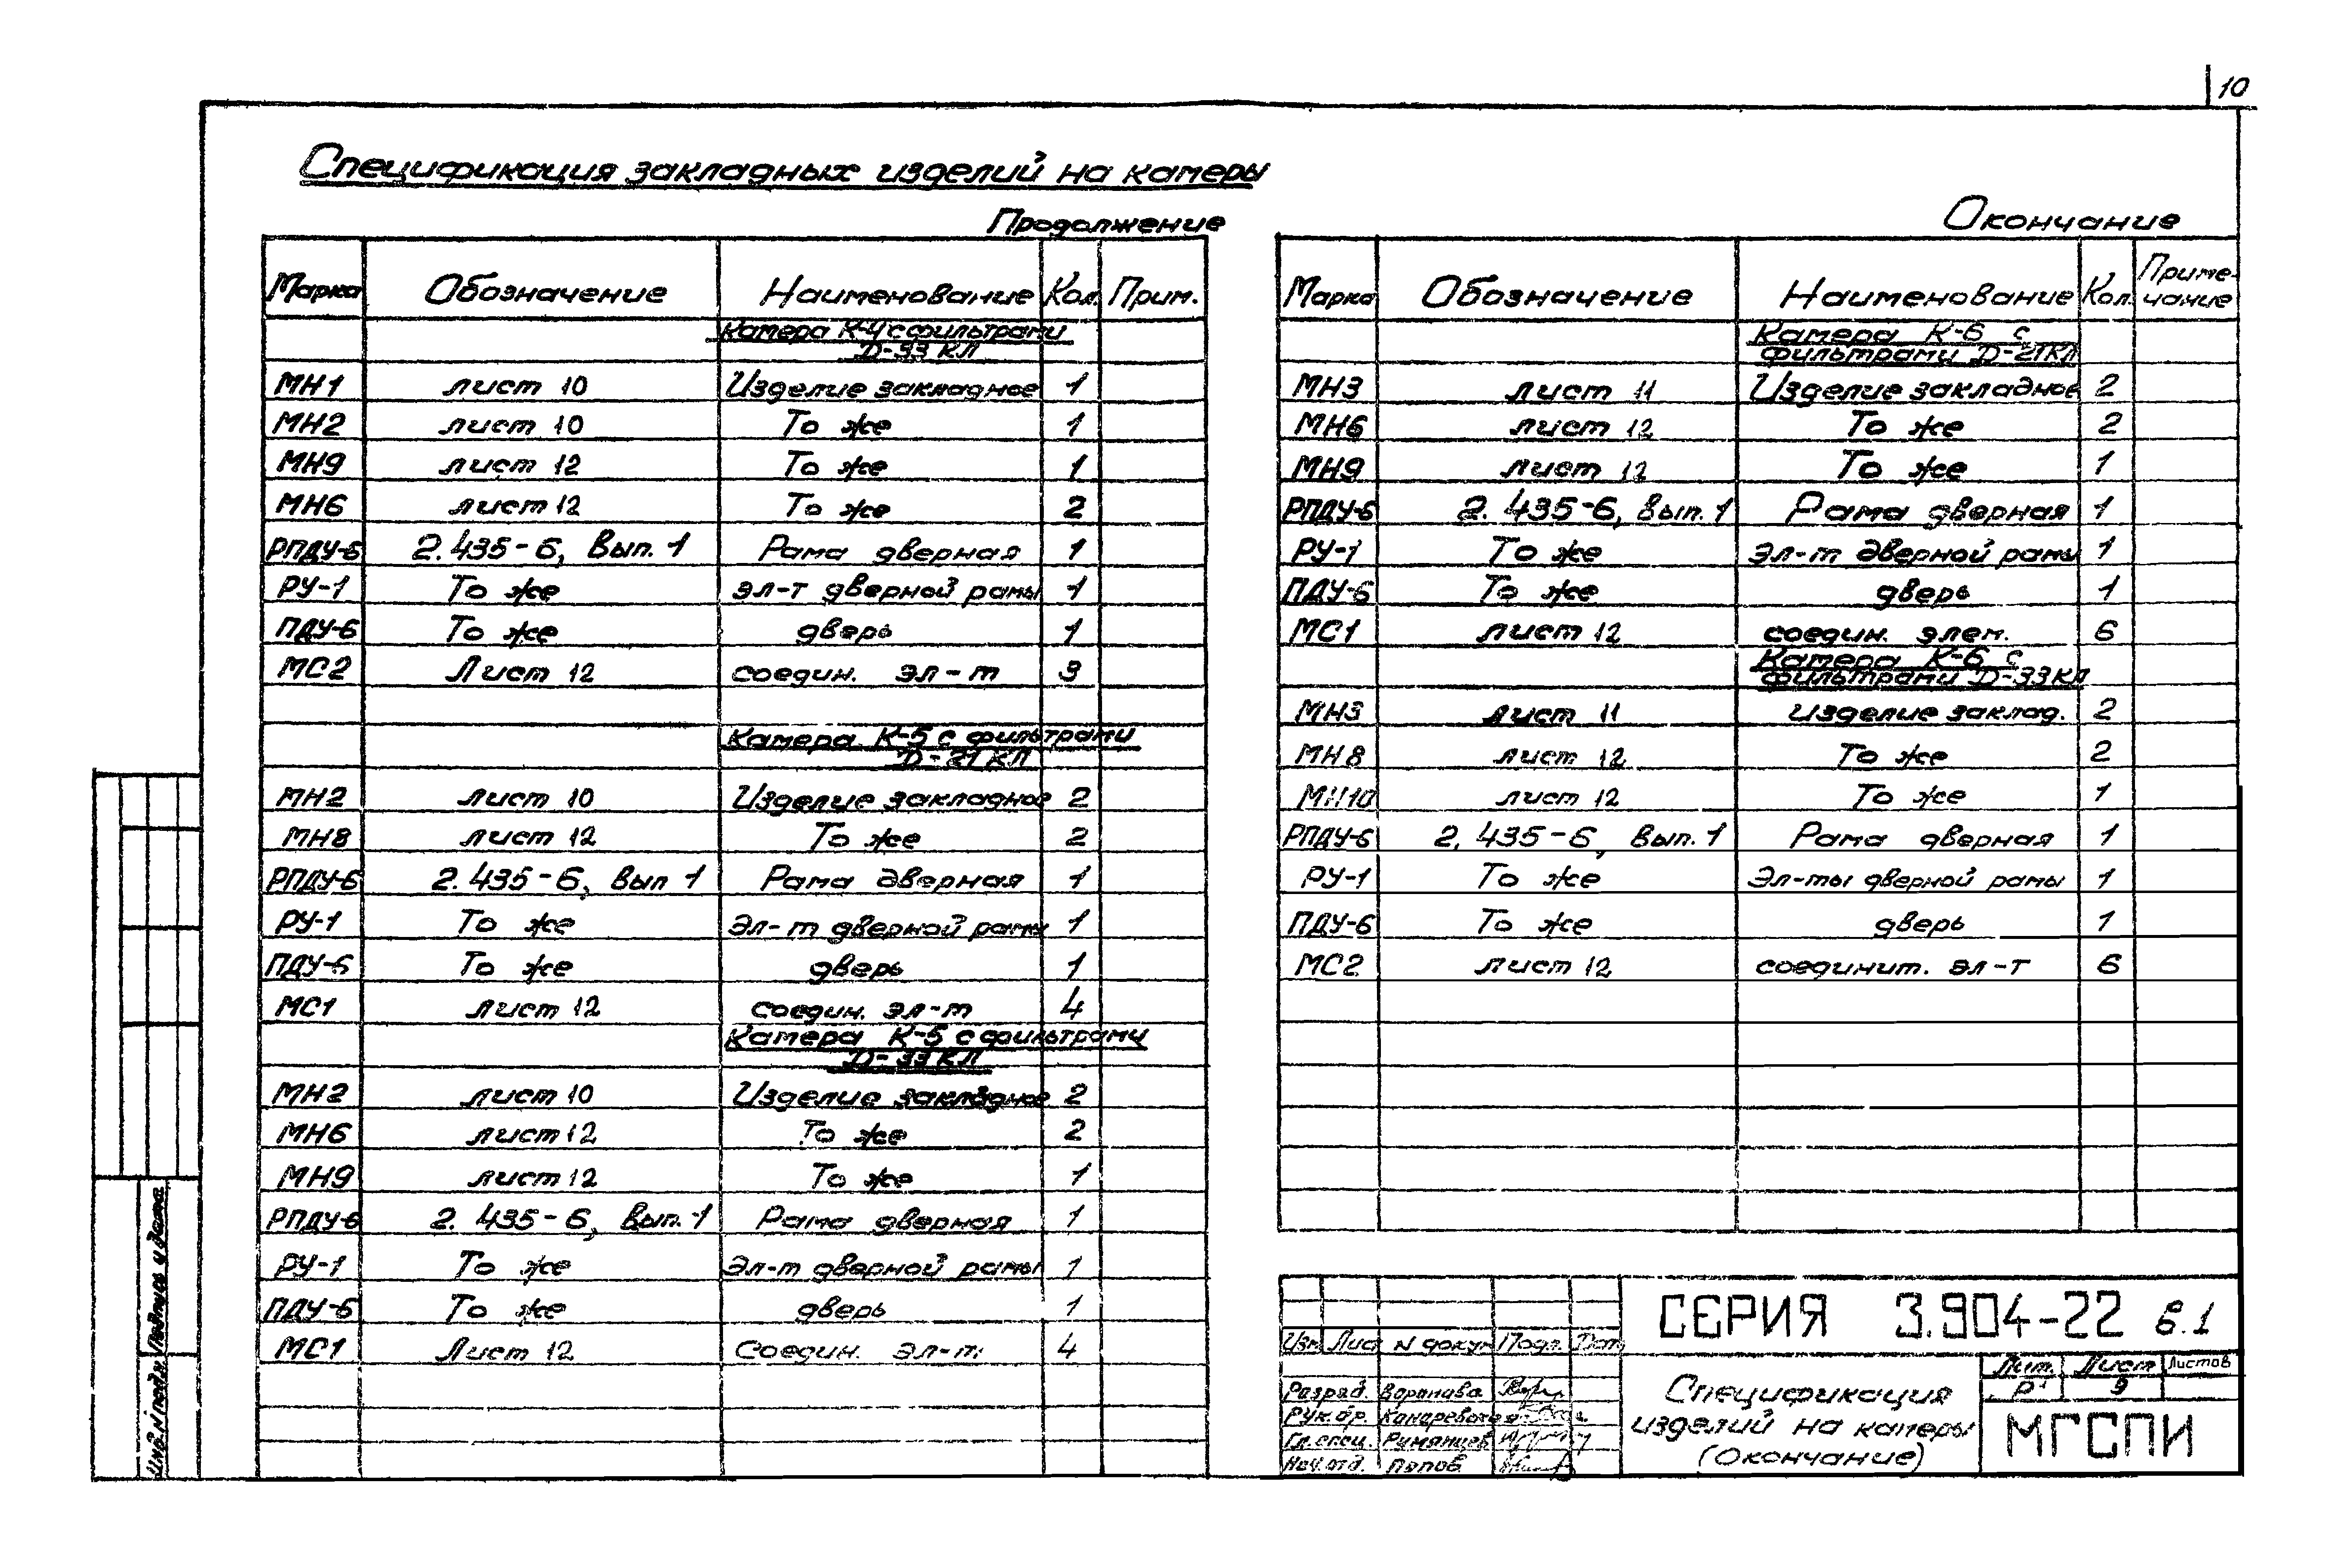 10
Спецификация закладных изделий на камеры
Продолжение
Марка Обозначение Наименование Кол. Прим.
Камера К-4 с фильтрами
Д-33 КЛ
МН1 лист 10 Изделие закладное 1
МН2 лист 10 То же 1
МН9 лист 12 То же 1
МН6 лист 12 То же 2
РПДУ-6 2.435-6, Вып. 1 Рама дверная 1
РУ-1 То же эл-т дверной рамы 1
ПДУ-6 То же дверь 1
МС2 Лист 12 соедин. эл-т 3
Камера К-5 с фильтрами
Д-21 КЛ
МН2 лист 10 Изделие закладное 2
МН8 лист 12 То же 2
РПДУ-6 2.435-6, Вып 1 Рама дверная 1
РУ-1 То же Эл-т дверной рамы 1
ПДУ-6 То же дверь 1
МС1 лист 12 соедин. эл-т 4
Камера К-5 с фильтрами
Д-33 КЛ
МН2 лист 10 Изделие закладное 2
МН6 лист 12 То же 2
МН9 лист 12 То же 1
РПДУ-6 2.435-6, Вып. 1 Рама дверная 1
РУ-1 То же Эл-т дверной рамы 1
ПДУ-6 То же дверь 1
МС1 Лист 12 Соедин. эл-т 4
Окончание
Марка Обозначение Наименование Кол. Приме-
чание
Камера К-6 с
фильтрами Д-21КЛ
МН3 лист 11 Изделие закладное 2
МН6 лист 12 То же 2
МН9 лист 12 То же 1
РПДУ-6 2.435-6, Вып. 1 Рама дверная 1
РУ-1 То же Эл-т дверной рамы 1
ПДУ-6 То же дверь 1
МС1 лист 12 соедин. элем. 6
Камера К-6 с
фильтрами Д-33КЛ
МН3 лист 11 изделие заклад. 2
МН8 лист 12 То же 2
МН10 лист 12 То же 1
РПДУ-6 2.435-6, Вып. 1 Рама дверная 1
РУ-1 То же Эл-ты дверной рамы 1
ПДУ-6 То же дверь 1
МС2 лист 12 соединит. эл-т 6
СЕРИЯ 3.904-22 в.1
Изм Лист N докум Подп. Дат
Разраб. Воронова
Рук. бр.
Гл. спец. Румянцев
Нач. отд. Попов
Спецификация
изделий на камеры
(Окончание)
Лит. Лист Листов
Р 9
МГСПИ
Инв. N подл. Подпись и дата